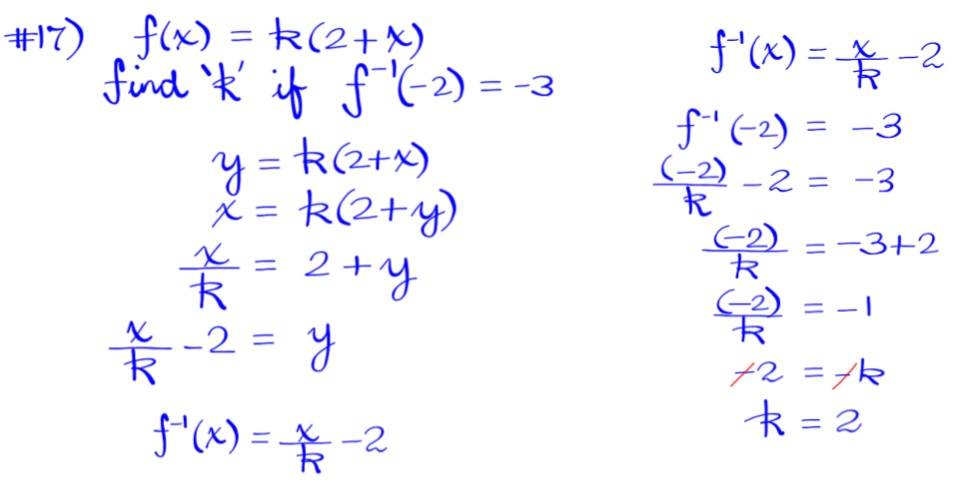 #17) f(x) = k(2+x)
find 'k' if f⁻¹(-2) = -3
y = k(2+x)
x = k(2+y)
x/k = 2+y
x/k - 2 = y
f⁻¹(x) = x/k - 2
f⁻¹(x) = x/k - 2
f⁻¹(-2) = -3
(-2)/k - 2 = -3
(-2)/k = -3+2
(-2)/k = -1
-2 = -k
k = 2